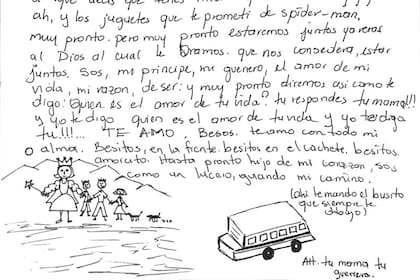 ah, y los juguetes que te prometi de spider-man,
muy pronto. pero muy pronto estaremos juntos ya veras
al Dios al cual le oramos. que nos consedera, estar
juntos. Sos, mi principe, mi guerrero, el amor de mi
vida, mi razon, de ser: y muy pronto diremos asi como te
digo: Quien es el amor de tu vida? tu respondes tu mama!!
y yo te digo quien es el amor de tu vida y yo te diga
tu!!!... TE AMO. Besos. te amo con todo mi
alma. Besitos, en la frente. besitos en el cachete, besitos
amorcito. Hasta pronto hijo de mi corazon, sos
como un lucero, guiando mi camino.
(Ahi te mando el busito
que siempre te
dibujo)
Att. tu mama tu
guerrera.